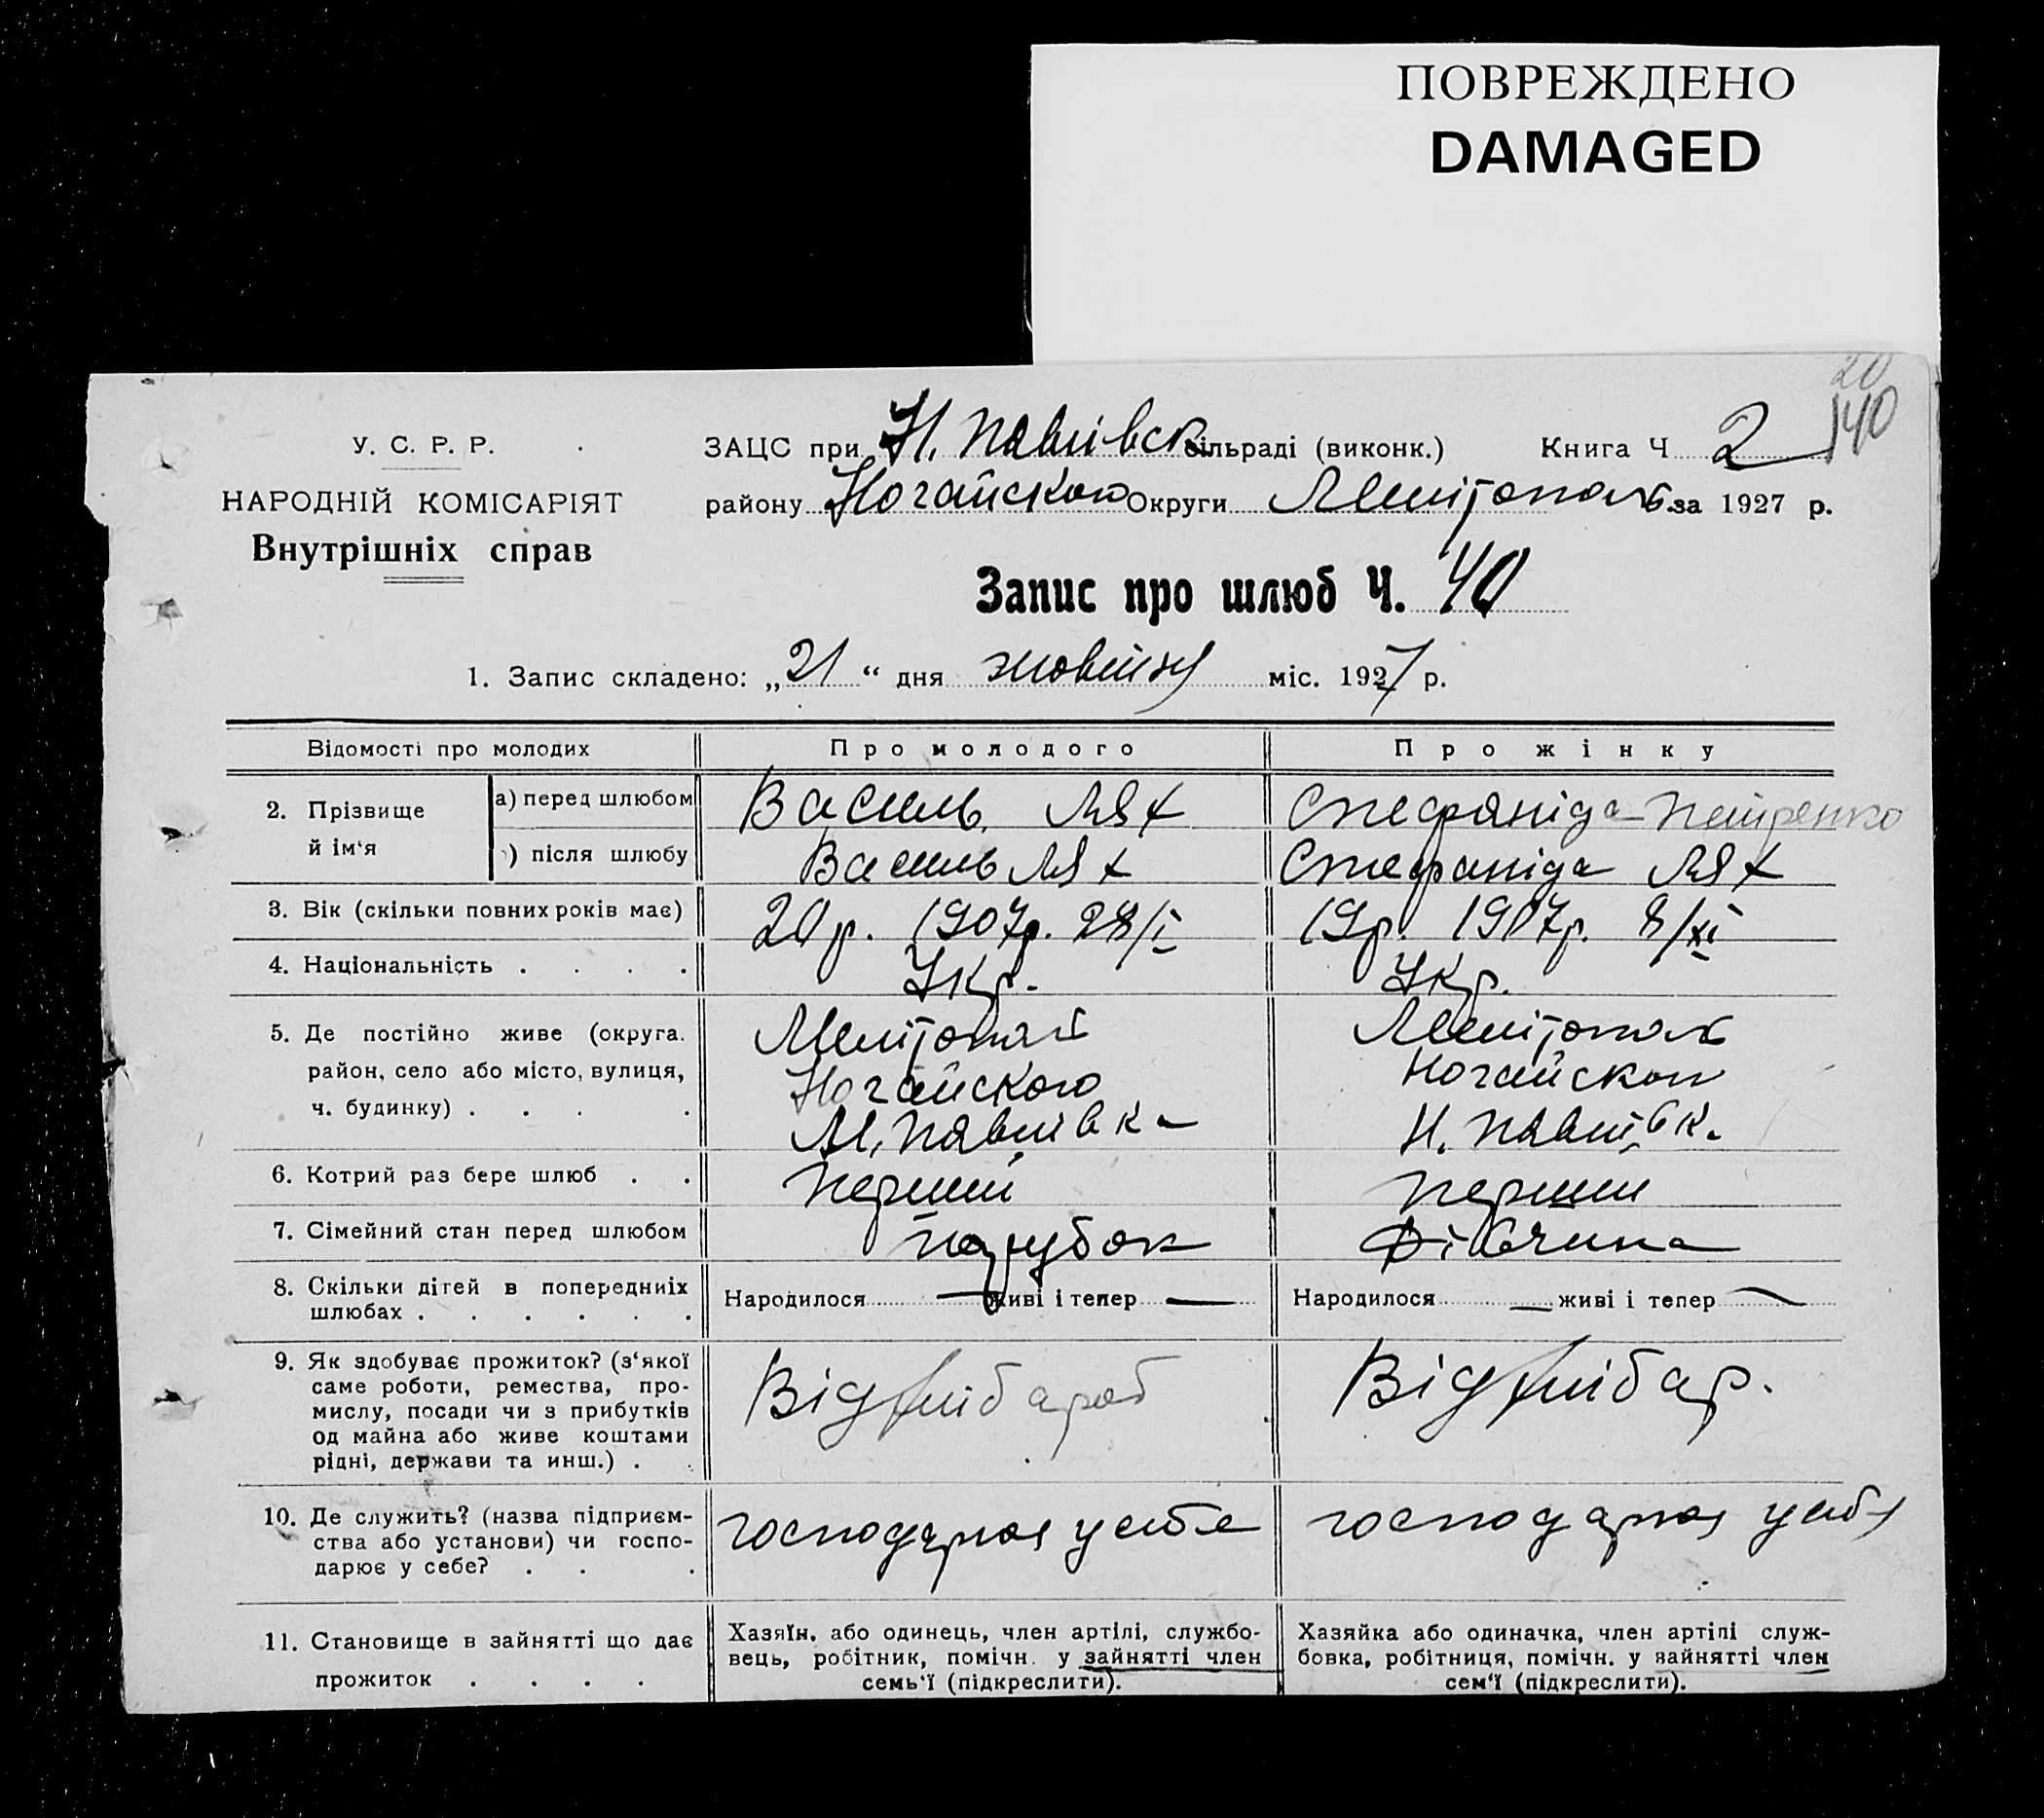 ПОВРЕЖДЕНО
DAMAGED
20
140
У. С. Р. Р.
НАРОДНІЙ КОМІСАРІЯТ
Внутрішніх справ
ЗАЦС при Н. Павлівск сільраді (виконк.) Книга Ч 2
району Ногайского Округи Мелітополь за 1927 р.
Запис про шлюб Ч. 40
1. Запис складено: „21“ дня жовтня міс. 1927 р.
Відомості про молодих Про молодого Про жінку
2. Прізвище й ім‘я
а) перед шлюбом Василь Лях Стефаніда Петренко
) після шлюбу Василь Лях Стефаніда Лях
3. Вік (скільки повних років має) 20 р. 1907р. 28/I 19р. 1907р. 8/XI
4. Національність . . . . Укр. Укр.
5. Де постійно живе (округа.
район, село або місто, вулиця,
ч. будинку) . . . .
Мелітопол
Ногайского
Н. Павлівка
Мелітополь
Ногайского
Н. Павлівк.
6. Котрий раз бере шлюб . . Перший Перший
7. Сімейний стан перед шлюбом парубок дівчина
8. Скільки дітей в попередниіх
шлюбах . . . . . .
Народилося — живі і тепер —
Народилося — живі і тепер —
9. Як здобуває прожиток? (з‘якої
саме роботи, ремества, про-
мислу, посади чи з прибутків
од майна або живе коштами
рідні, держави та инш.) . .
Від хлібароб
Від хлібар.
10. Де служить? (назва підприєм-
ства або установи) чи госпо-
дарює у себе? . . .
господарює у себе
господарює у себе
11. Становище в зайнятті що дає
прожиток . . . .
Хазяїн, або одинець, член артілі, службо-
вець, робітник, помічн. у зайнятті член
семь‘ї (підкреслити).
Хазяйка або одиначка, член артілі служ-
бовка, робітниця, помічн. у зайнятті член
сем‘ї (підкреслити).